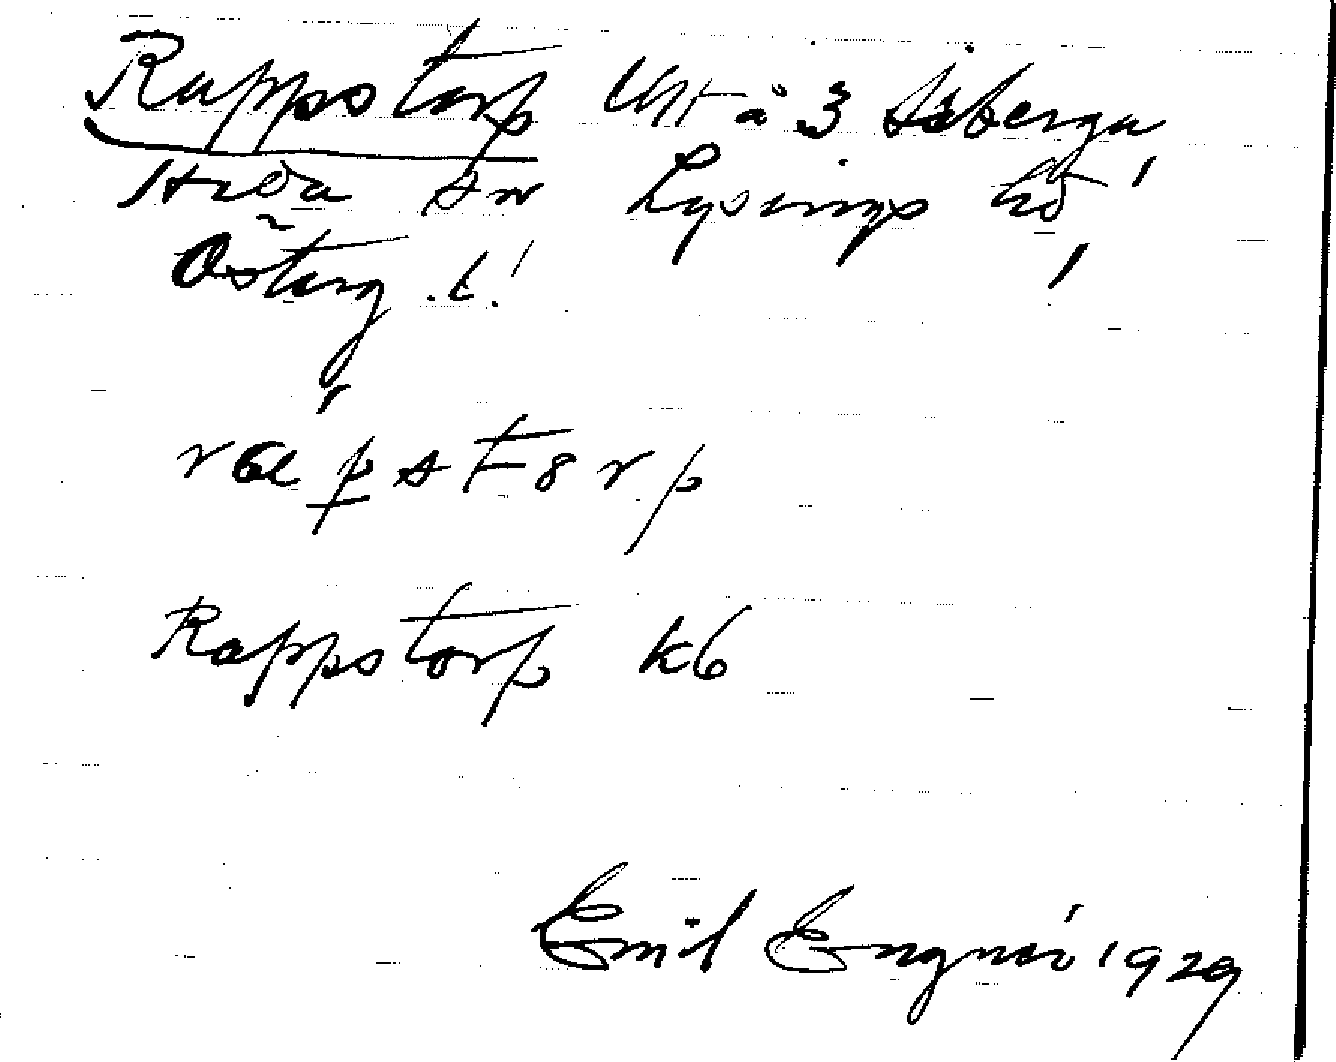 Rappstorp Utt å 3 Isberga
Heda sn Lysings hd
Österg. l.
rapstorp
Rappstorp kb
Emil Engnér 1929